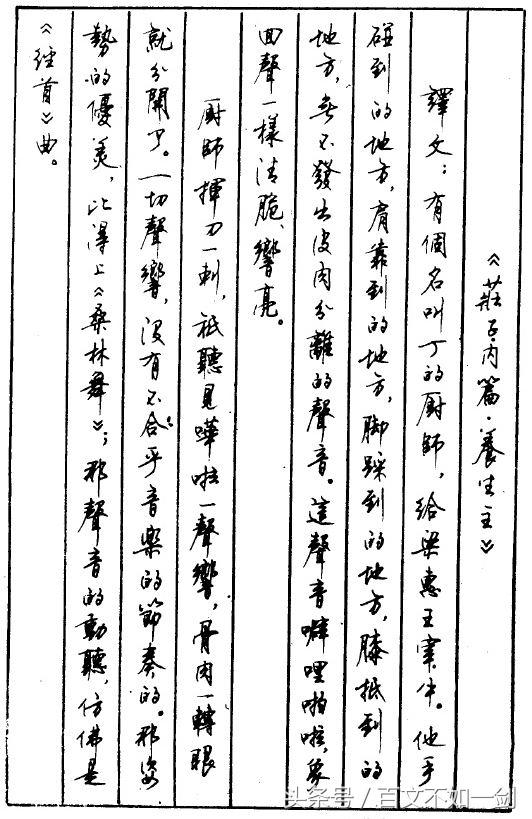 《莊子·內篇·養生主》
譯文：有個名叫丁的厨師，給梁惠王宰牛。他手
碰到的地方，肩靠到的地方，脚踩到的地方，膝抵到的
地方，無不發出皮肉分離的聲音。這聲音噼哩啪啦，象
回聲一樣清脆、響亮。
厨師揮刀一刺，祇聽見嘩啦一聲響，骨肉一轉眼
就分開了。一切聲響，没有不合乎音樂的節奏的。那姿
勢的優美，比得上《桑林舞》；那聲音的動聽，仿佛是
《經首》曲。
头条号／百文不如一剑